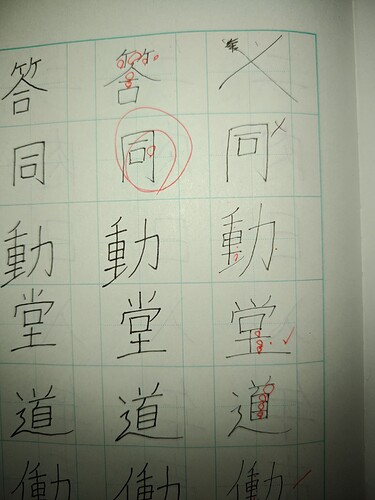 答 答
同 同 同
動 動 動
堂 堂 堂
道 道 道
働 働 働